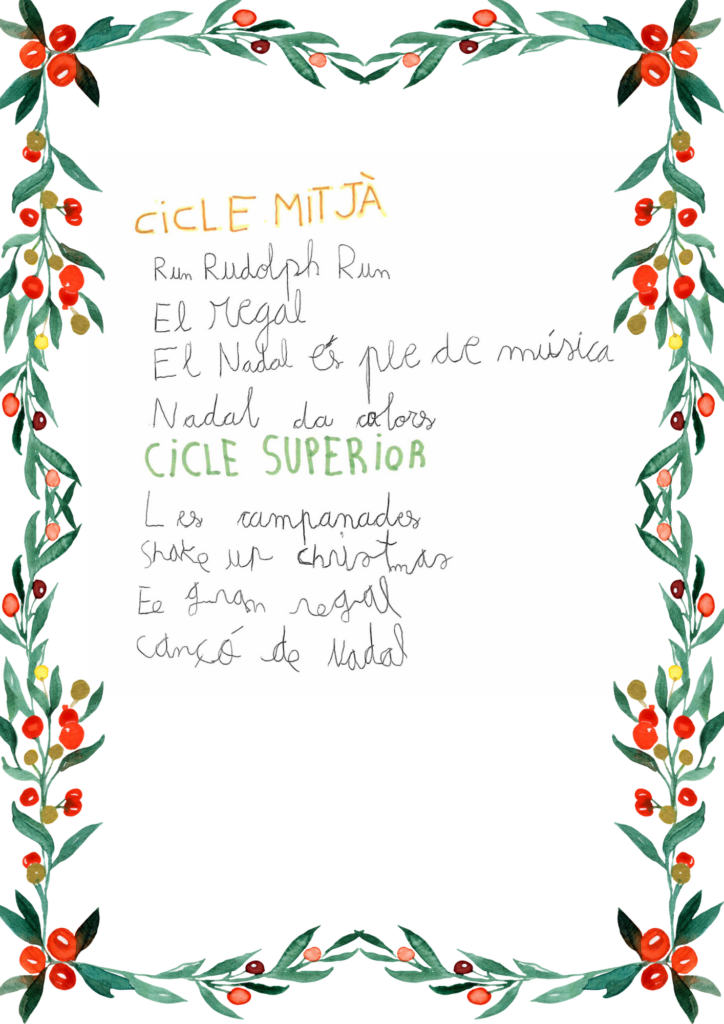 CiCLE MITJÀ
Run Rudolph Run
El regal
El Nadal és ple de música
Nadal da colors
CiCLE SUPERiOR
Les campanades
Shake up christmas
El gran regal
cançó de Nadal